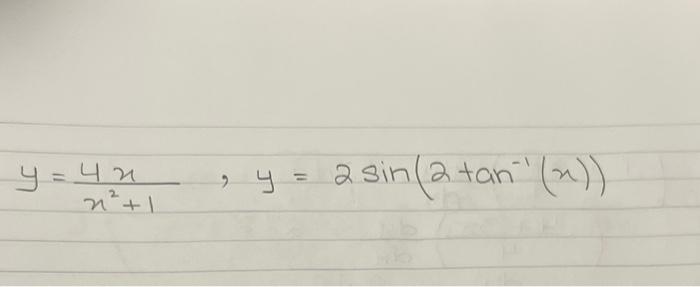 y = 4x/(x²+1) , y = 2 sin(2 tan⁻¹(x))